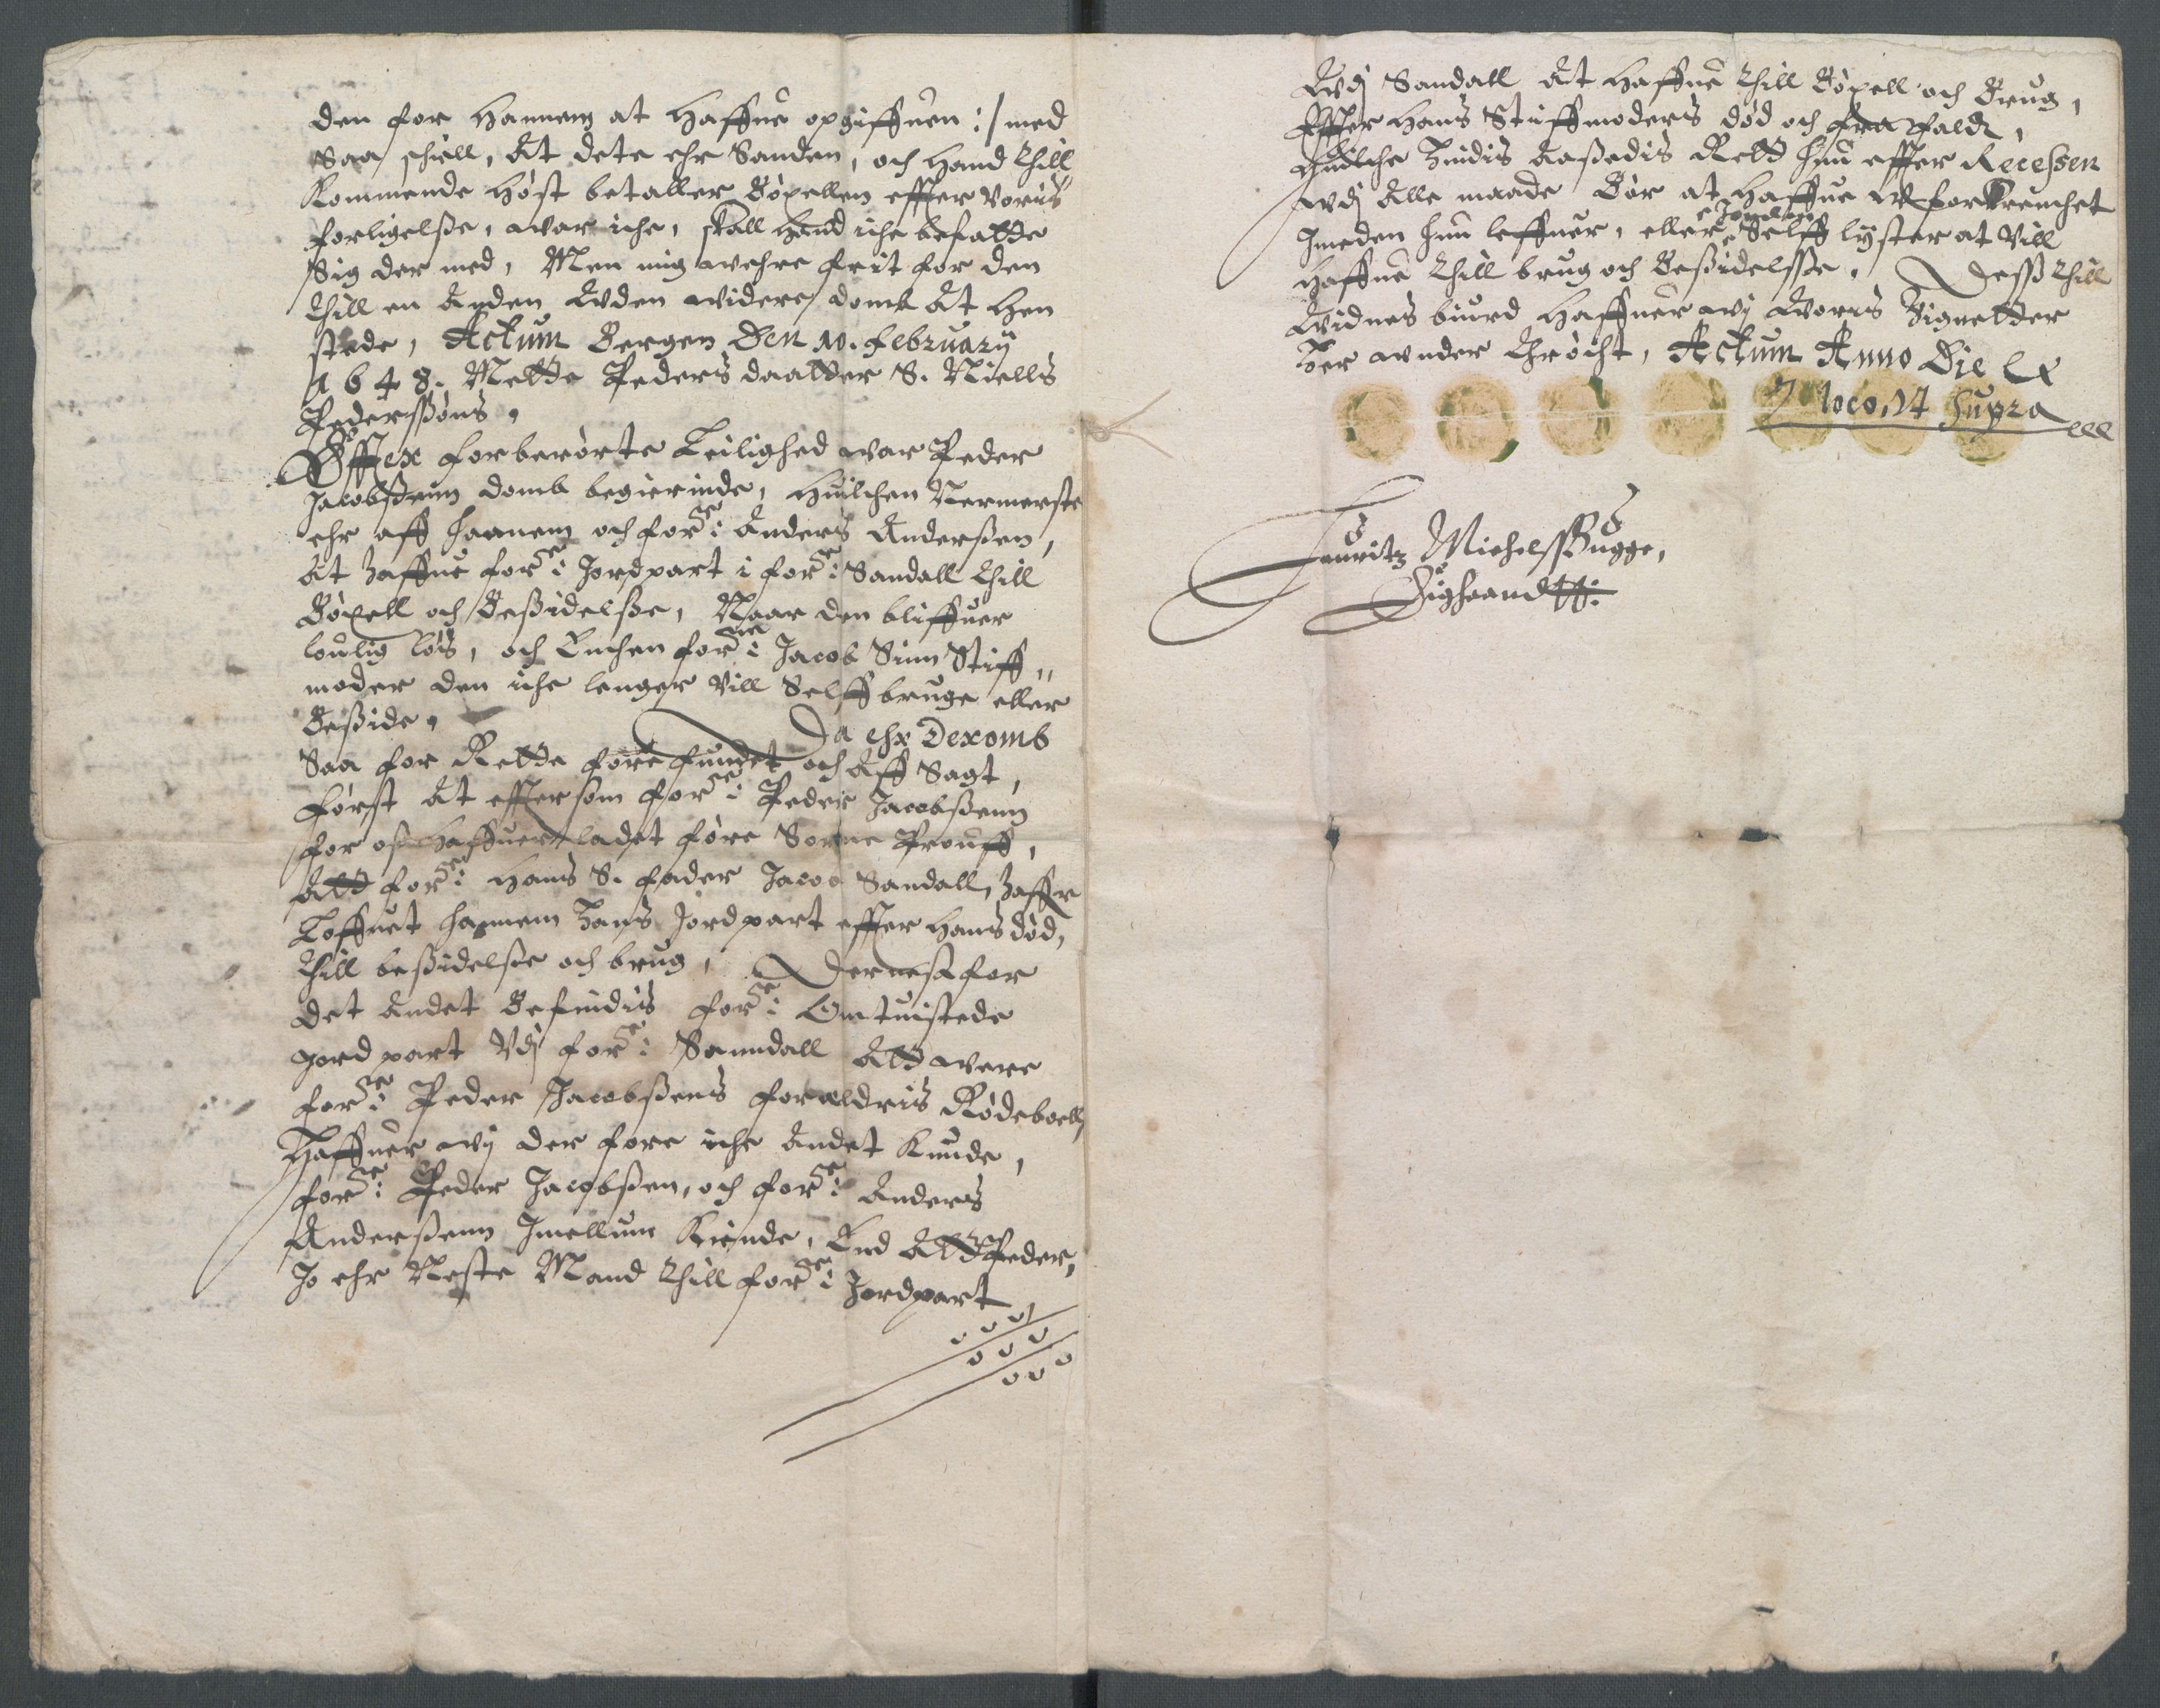 den for hannem at haffue opgiffuen :/ med
Saa schiell, At dete ehr Sanden, och hand thill
Kommende høst betaller Bøxellen effter voris
forligelsse, war iche, skall hand iche befatte
Sig der med, Men mig wehre frit for den
thill en Anden Vden widere domb At hen
stede, Actum Bergen Den 10. february
1648. Mette Peders daatter S. Niells
Pederssøns.
Effter forberørte Leilighed war Peder
Jacobssenn domb begierinde, huilchen Nermerste
ehr aff haanem och forne: Anders Anderssen,
At haffue forne: Jordpart i forne: Sandall thill
Bøxell och Bessidelsse, Naar den bliffuer
loulig løs, och Enchen forne: Jacob Sinn Stiff,,
moder den iche lenger vill Selff bruge eller
Besside.
Da ehr Deromb
Saa for Rette fore fundet och Aff Sagt,
først At effter som forne: Peder Jacobssenn
for oss haffuer ladet føre Sorne Prouff,
Att forne: hans S. fader Jacob Sandall, haffr
Loffuet hannem hans Jordpart effter hans død,
thill bessidelse och brug, Dernest for
det Andet Befindis forne: Omtuistede
Jord part Vdj forne: Sanndall Att were
forne: Peder Jacobssens forældris Rødeboell,
Haffuer wj der fore iche Andet Kunde,
forne: Peder Jacobssen, och forne: Anders
Anderssenn Jmellum Kiende, End Att Peder,
Jo ehr Neste Mand thill forne: Jordpart
Vdj Sandall At haffue thill Bøxell och Brug,
Effter hans Stiffmoders død och fra fald,
huilche hindis Aassedis Rett hun effter Recessen
wdj Alle maade Bør at haffue Wforkrenchet
Jmeden hun leffuer, eller Selff lyster at Vill
haffue thill brug och Bessidelsse. Dess thill
Vidnes biurd haffuer wj Voris Zignetter
her wnder thrøcht, Actum Anno Die Et
loco, Vt Supra
Lauritz Michelss Bugge,
Eighaand